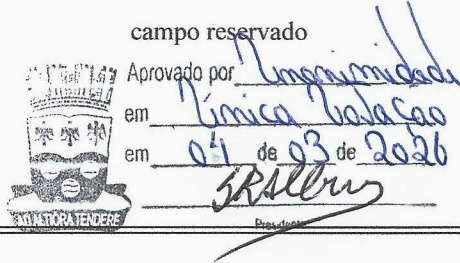 campo reservado
Aprovado por Unanimidade
em Única Votação
em 04 de 03 de 2026
Presidente